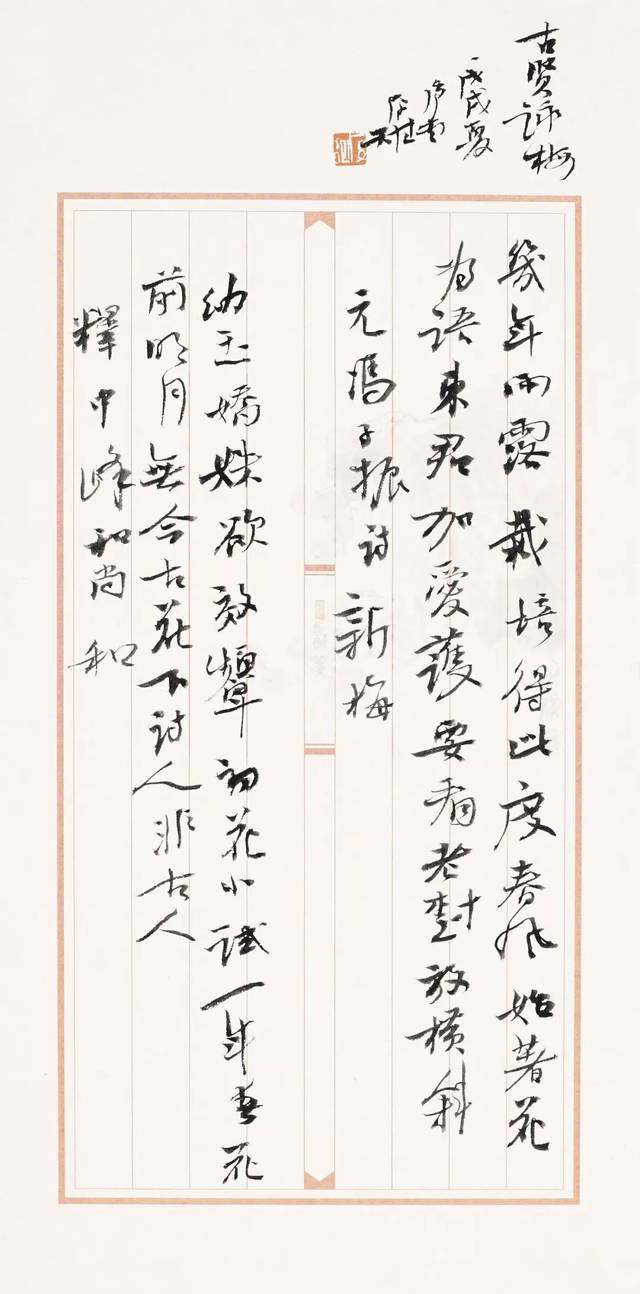 古賢詠梅
戊戌夏
幾年雨露栽培得此度春風始著花
為語東君加愛護要看老樹放橫斜
元馮子振詩新梅
幼玉嬌姝欲效顰初花小試一年春花
前明月無今古花下詩人非古人
釋中峰和尚和